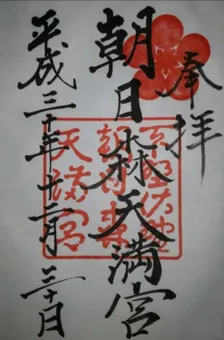 奉拝
朝日森天満宮
平成三十年十二月三十日
朝日森
天満宮